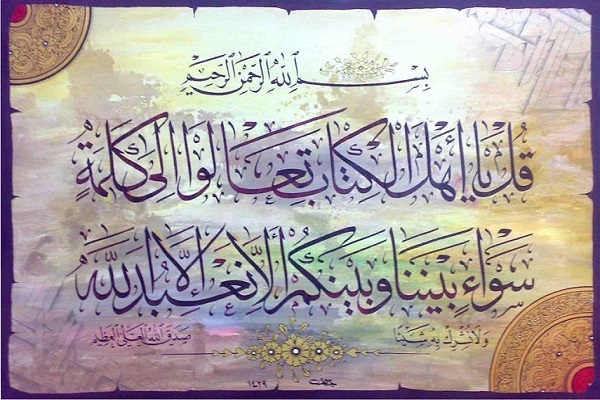 بِسْمِ اللهِ الرَّحْمٰنِ الرَّحِيْمِ
قُلْ يَا أَهْلَ الْكِتَابِ تَعَالَوْا إِلَىٰ كَلِمَةٍ
سَوَاءٍ بَيْنَنَا وَبَيْنَكُمْ أَلَّا نَعْبُدَ إِلَّا اللهَ
وَلَا نُشْرِكَ بِهِ شَيْئًا صَدَقَ اللهُ الْعَلِيُّ الْعَظِيْمُ
١٤٢٩